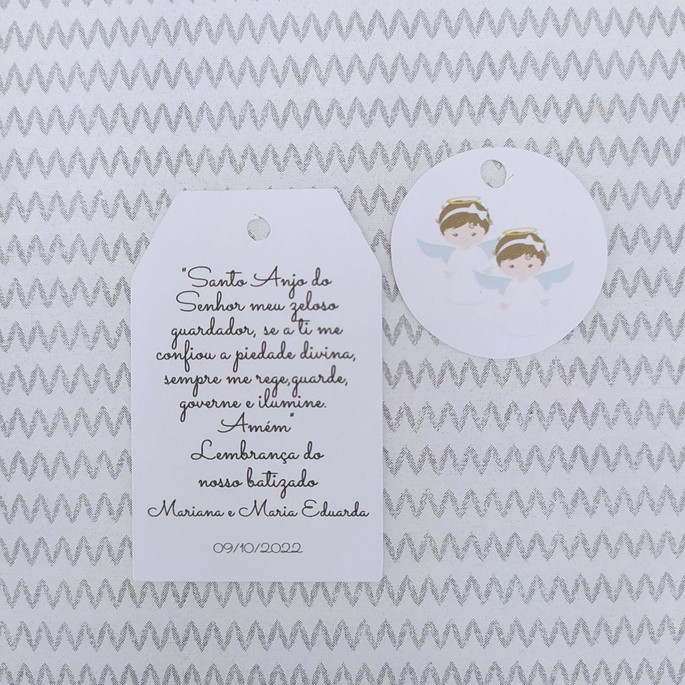 "Santo Anjo do
Senhor meu zeloso
guardador, se a ti me
confiou a piedade divina,
sempre me rege,guarde,
governe e ilumine.
Amém"
Lembrança do
nosso batizado
Mariana e Maria Eduarda
09/10/2022